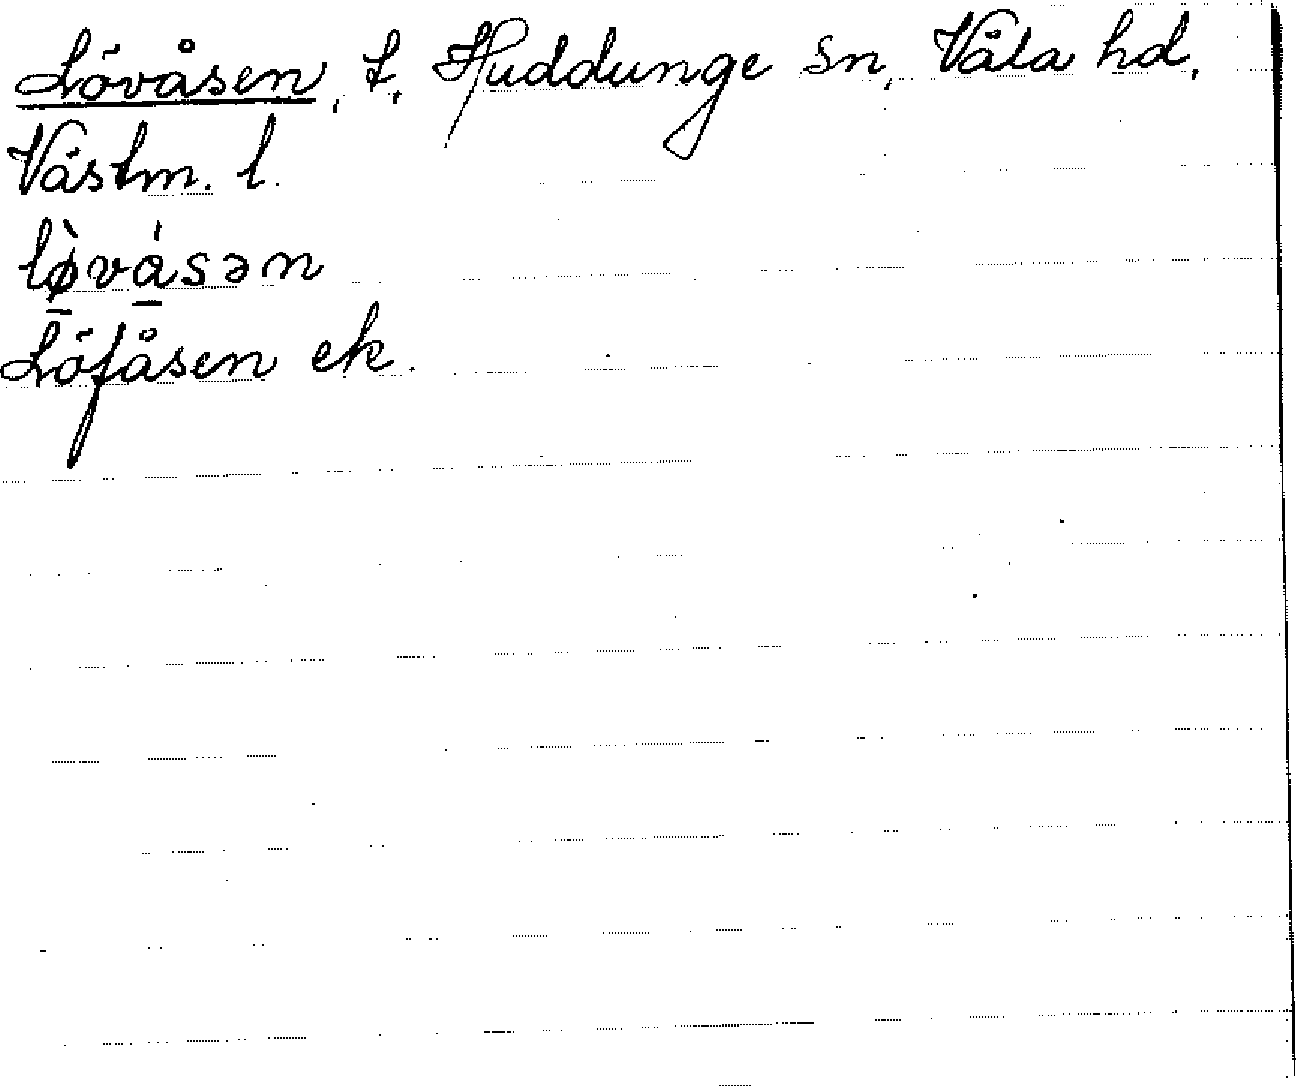 Lövåsen, t, Huddunge sn, Våla hd,
Västm. l.
lø̀våsən
Löfåsen ek.